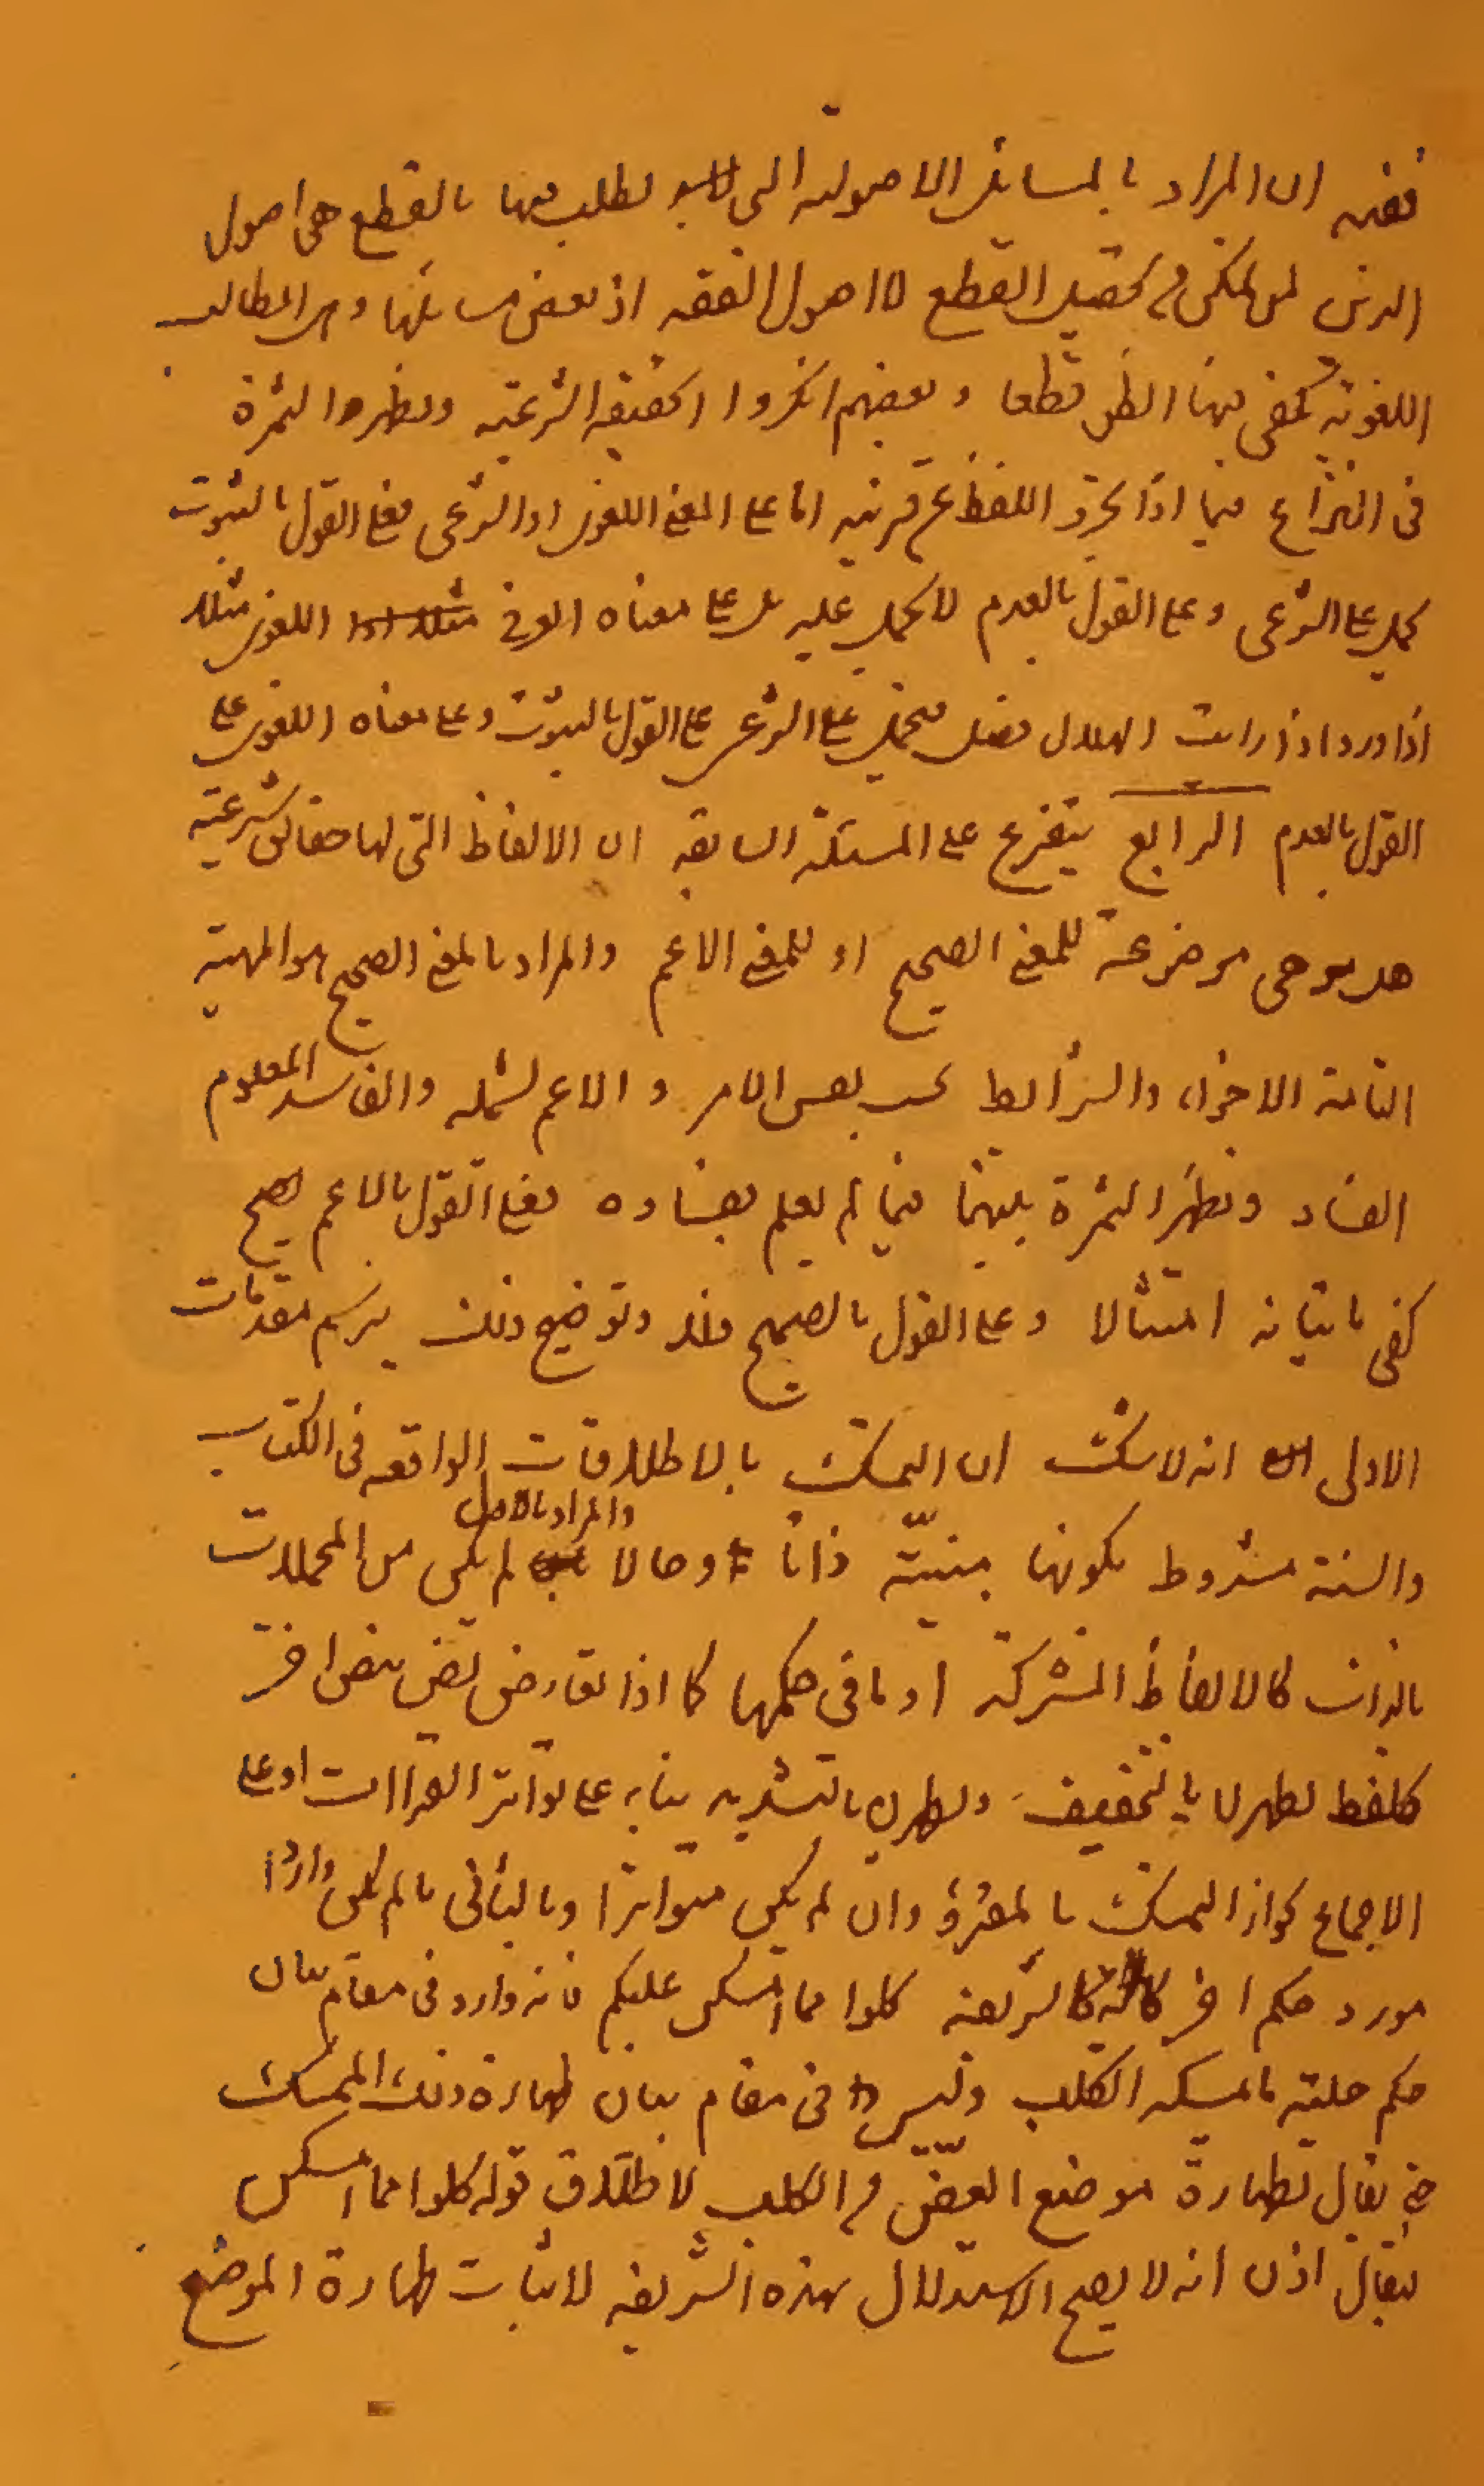 ففيه ان المراد بالمسائل الاصولية التي يطلب فيها بالقطع هي اصول
الدين لمن تمكن من تحصيل القطع لا اصول الفقه اذ بعض مسائلها وهي المطالب
اللغوية يكفي فيها الظن قطعا و بعضهم انكروا الحقيقة الشرعية ويظهر الثمرة
في النزاع فيما اذا تجرد اللفظ عن قرينه اما على المعنى اللغوي او الشرعي فعلى القول بالثبوت
يحمل على الشرعي وعلى القول بالعدم لا يحمل عليه بل على معناه العرفي اللغوي مثلا
اذا ورد اذا رايت الهلال فصل فيحمل على الشرعي على القول بالثبوت وعلى معناه اللغوي على
القول بالعدم الرابع يتفرع على المسئلة السابقة ان الالفاظ التي لها حقائق شرعية
هل هي موضوعة للمعنى الصحيح او للمعنى الاعم والمراد بالمعنى الصحيح هو المهية
التامة الاجزاء والشرائط بحسب نفس الامر و الاعم يشمله والفاسد المعلوم
الفساد ويظهر الثمرة بينهما فيما لم يعلم بفساده فعلى القول بالاعم يصح
كفى باتيانه امتثالا وعلى القول بالصحيح فلا وتوضيح ذلك يرسم مقدمات
الاولى انه لا شك ان التمسك بالاطلاقات الواقعه في الكتاب
والسنة مشروط بكونها مبنيّة ذاتا وحالا والمراد بالاول لم يكن من المجملات
بالذات كالالفاظ المشتركة او ما في حكمها كما اذا تعارض بعض ببعض اخر
كلفظ يطهرن بالتخفيف ويطهرن بالتشديد بناء على تواتر القراات او على
الاجماع بجواز التمسك بالمقروّ وان لم يكن متواترا وبالثاني ما لم يكن واردا
مورد حكم اخر كالشريفة كلوا مما امسكن عليكم فانه وارد في مقام بيان
حكم حلية ما يمسكه الكلب وليس في مقام بيان طهارة ذلك الممسك
حتى يقال بطهارة موضع العضّ من الكلب لاطلاق قوله كلوا مما امسكن
فيقال اذن انه لا يصح الاستدلال بهذه الشريفة لاثبات طهارة الموضع